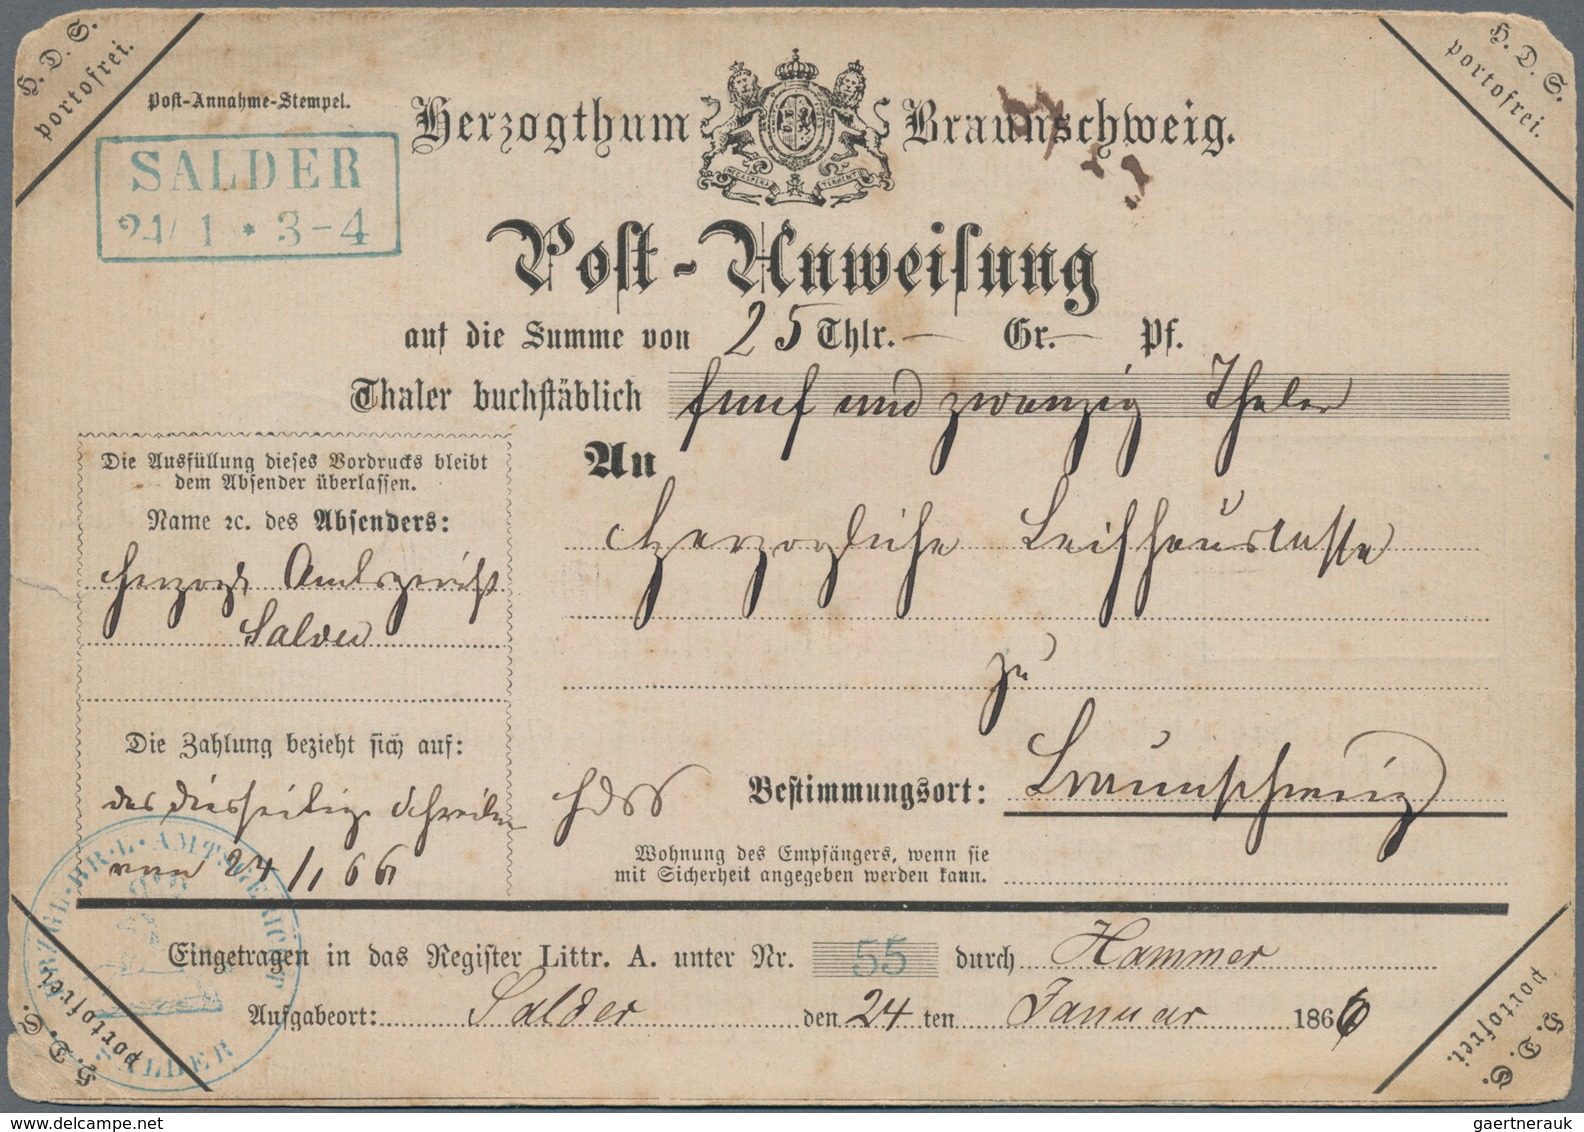 H. D. S.
portofrei.
H. D. S.
portofrei.
Post-Annahme-Stempel.
SALDER
24/1 * 3-4
Herzogthum Braunschweig.
NEC ASPERA TERRENT
Post-Anweisung
auf die Summe von 25 Thlr. — Gr. — Pf.
Thaler buchstäblich fünf und zwanzig Thaler
Die Ausfüllung dieses Vordrucks bleibt
dem Absender überlassen.
Name ꝛc. des Absenders:
Herzogl. Amtsgericht
Salder
An
Herzogliche Leihhauscasse
zu
Die Zahlung bezieht sich auf:
das diesseitige Schreiben
vom 24/1 66
HDSS
Bestimmungsort: Braunschweig
Wohnung des Empfängers, wenn sie
mit Sicherheit angegeben werden kann.
HRZGL. BR. L. AMTSGERICHT
SALDER
Eingetragen in das Register Littr. A. unter Nr. 55 durch Hammer
Aufgabeort: Salder den 24 ten Januar 1866
H. D. S.
portofrei.
H. D. S.
portofrei.
gaertnerauk // delcampe.net